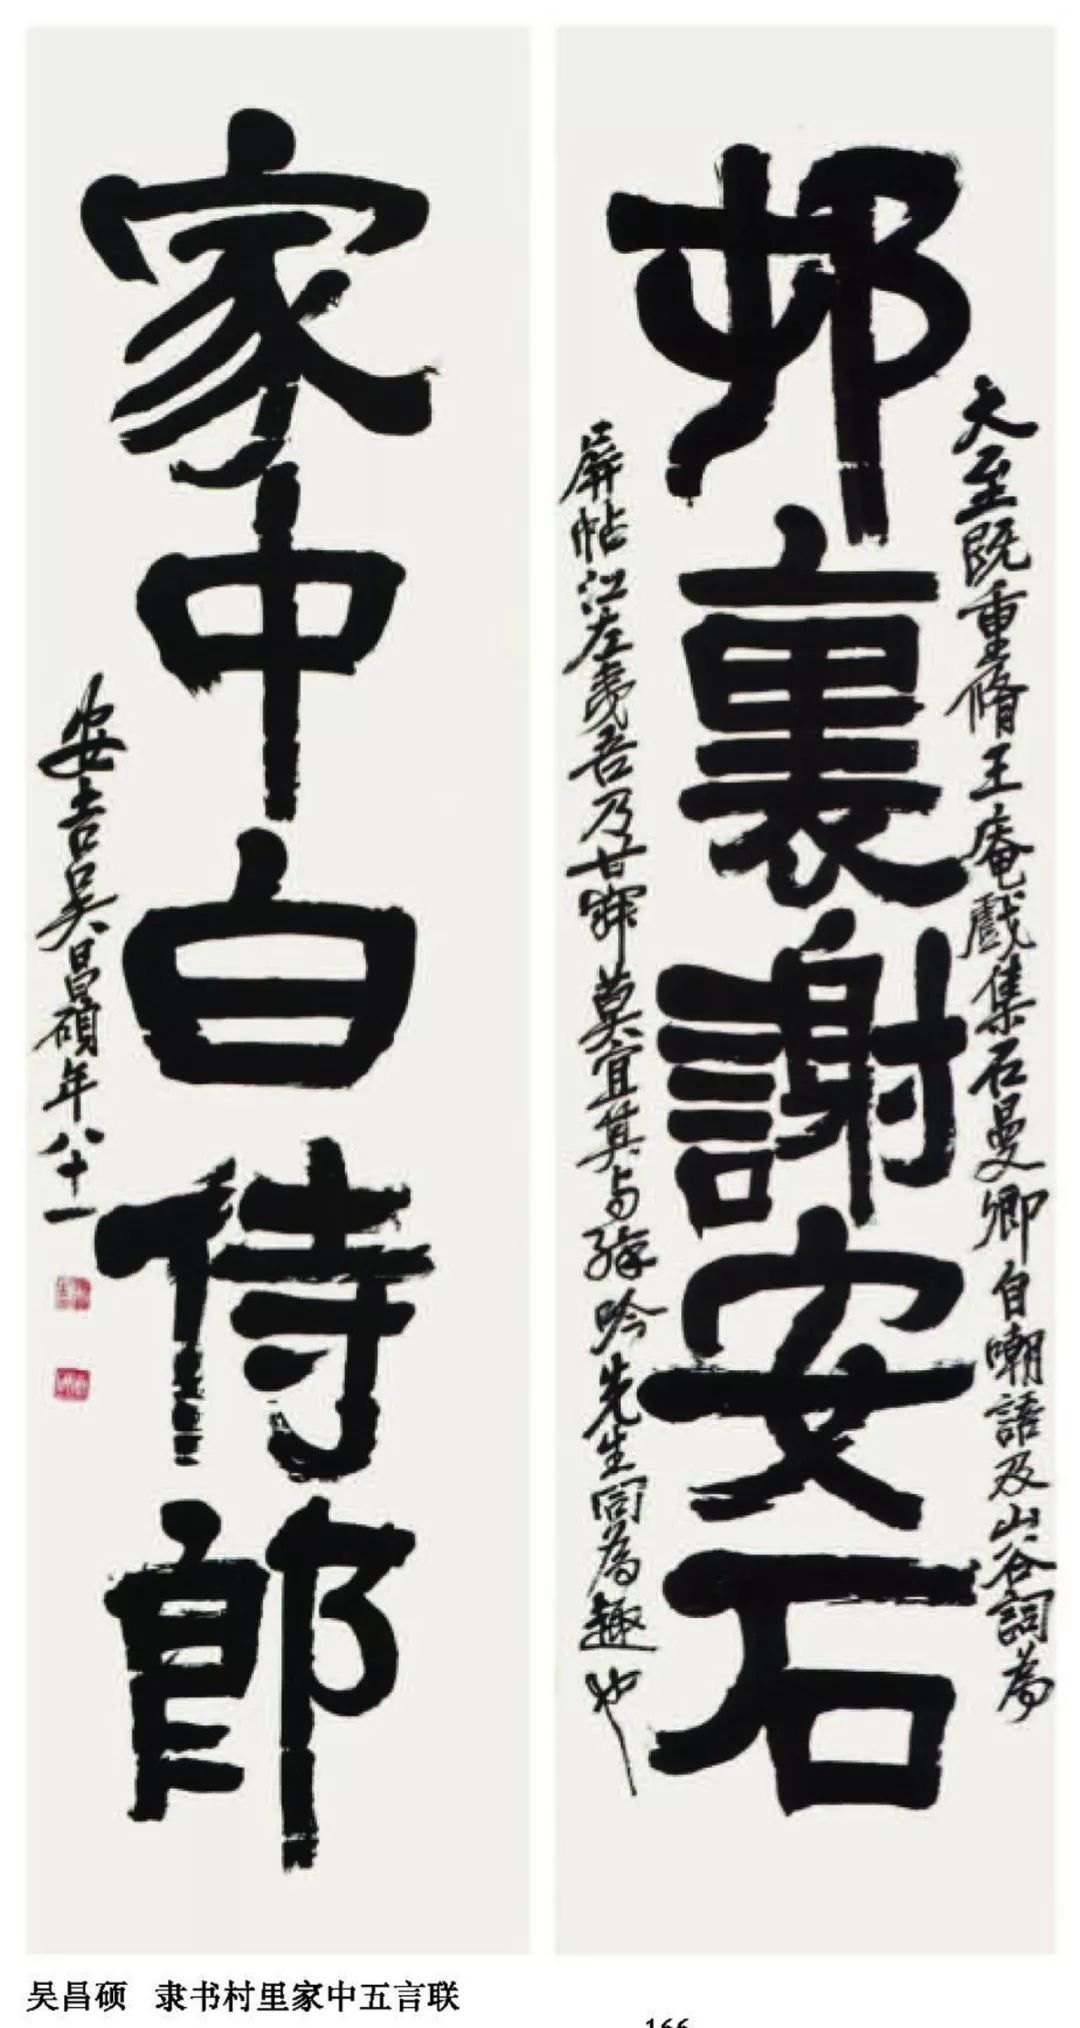 邨裏謝安石
大至既重脩王庵戲集石曼卿自嘲語及山谷詞為
屏帖江左夷吾乃甘寢莫宜其与孫吟先生同為趣也
家中白侍郎
安吉吴昌碩年八十一
吴昌硕 隶书村里家中五言联
166